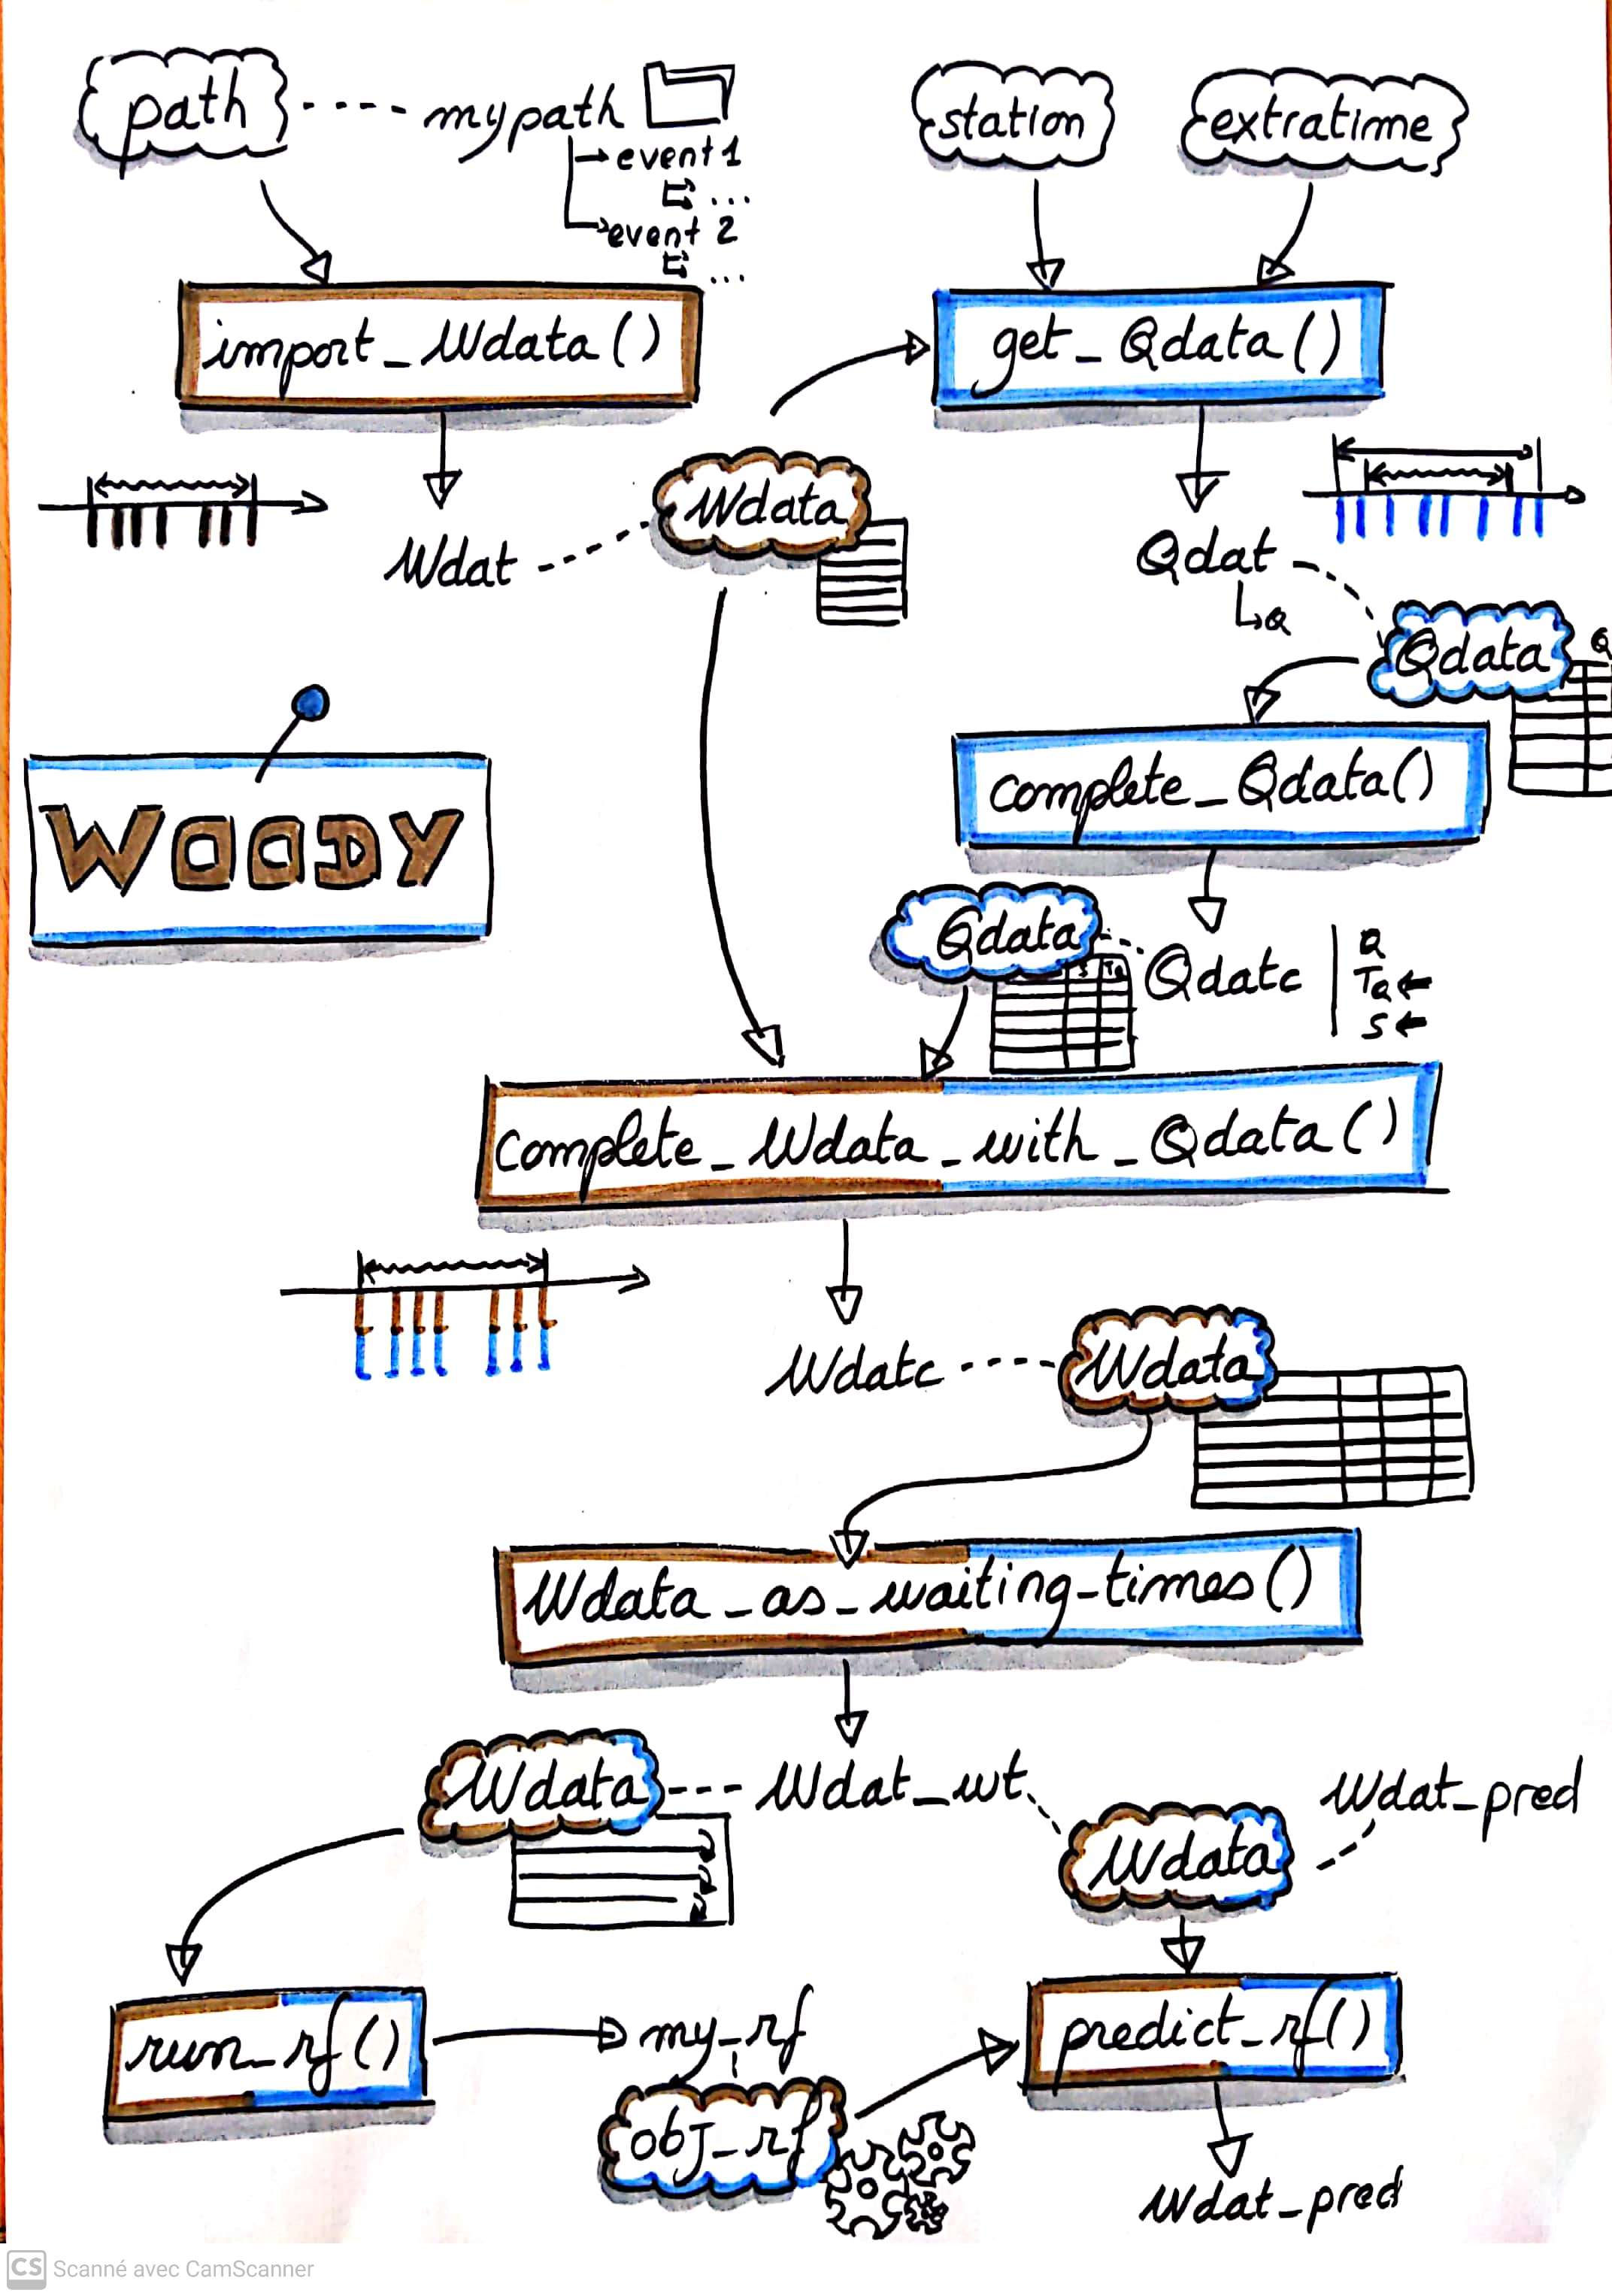 path
mypath
event 1
...
event 2
...
station
extratime
import_Wdata()
get_Qdata()
Wdata
Wdat
Qdat
Q
Qdata
Q
WOODY
complete_Qdata()
Qdata
S TQ
Qdatc
Q
TQ
S
complete_Wdata_with_Qdata()
Wdatc
Wdata
Wdata_as_waiting-times()
Wdata
Wdat_wt
Wdat_pred
Wdata
run_rf()
my_rf
predict_rf()
obj_rf
Wdat_pred
CS Scanné avec CamScanner